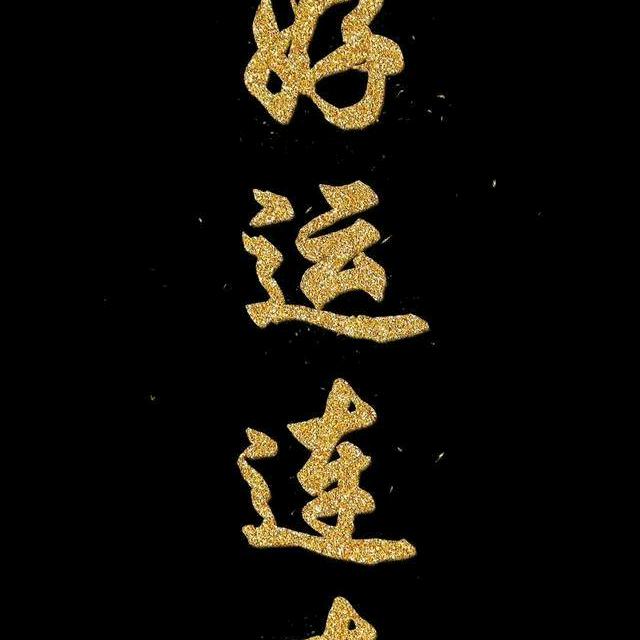 好运连